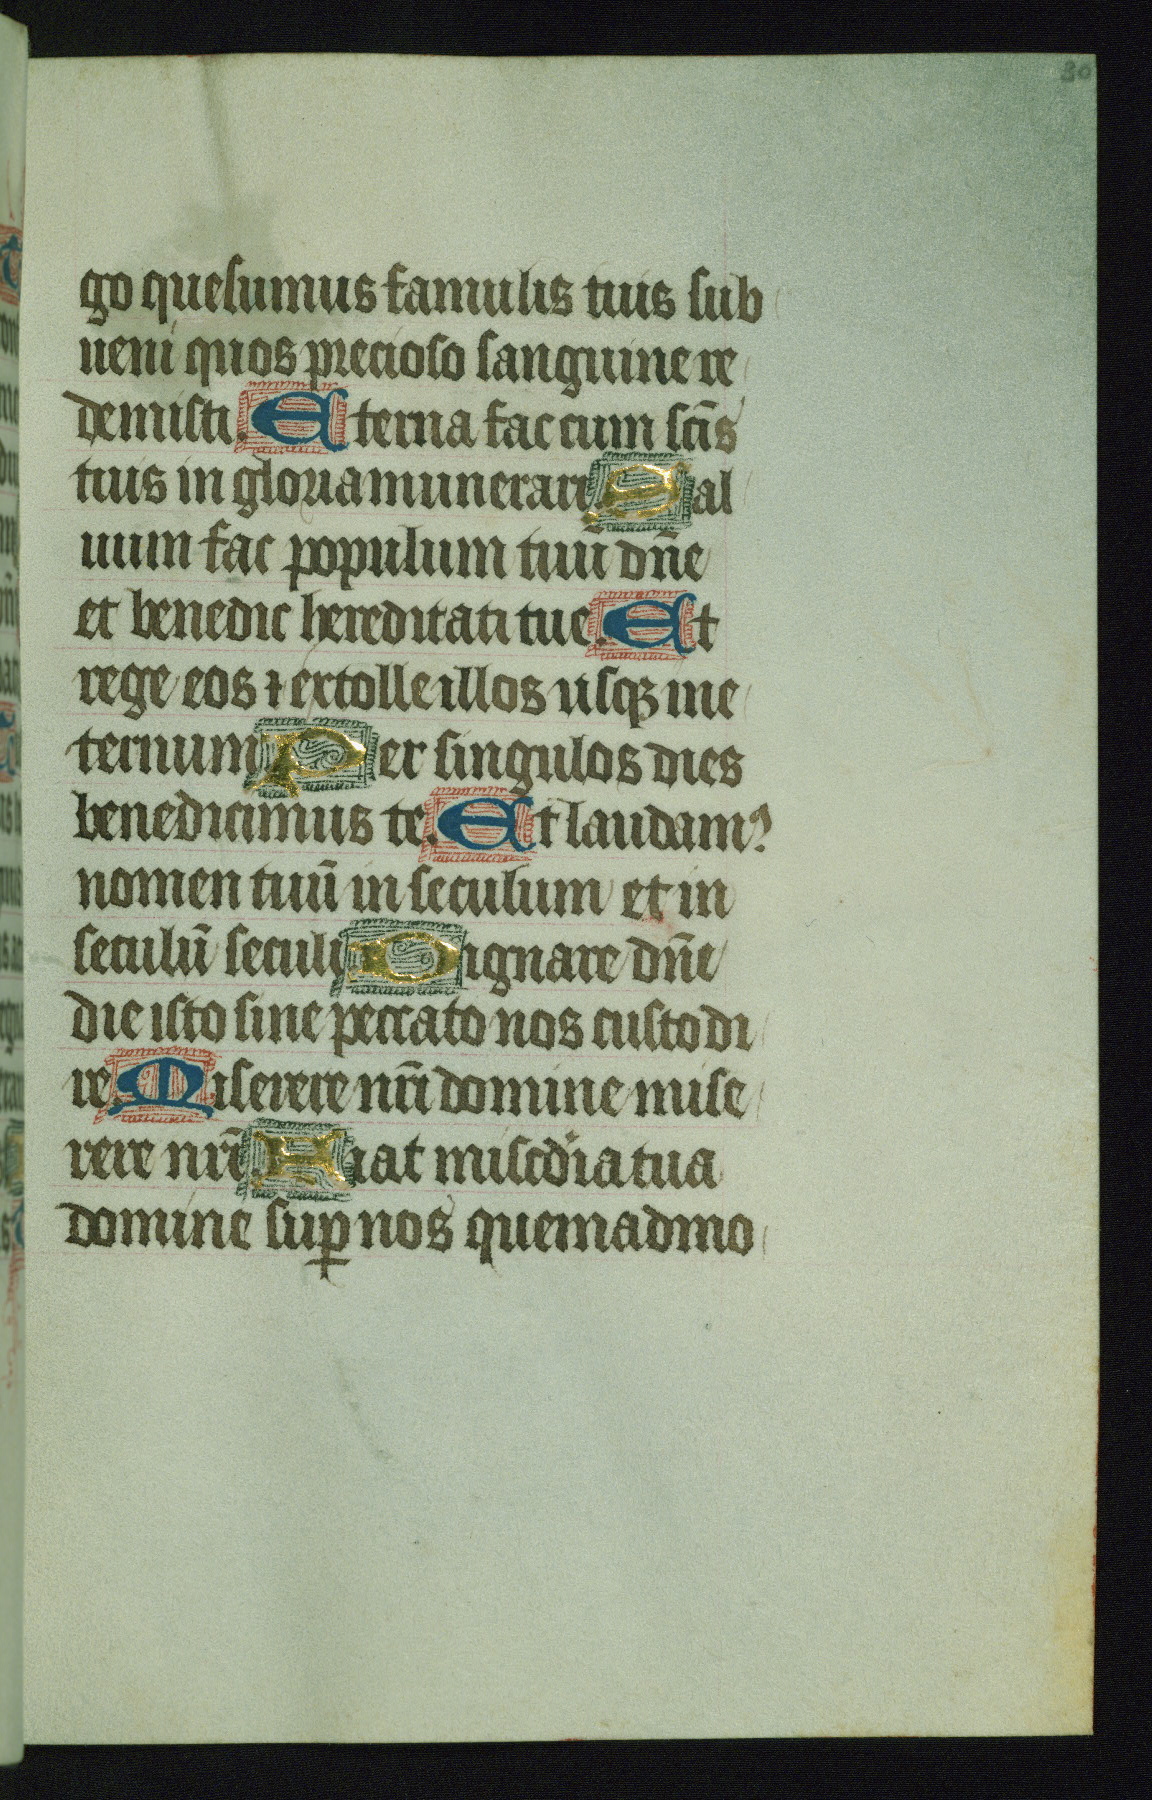 30
go quesumus famulis tuis sub
ueni quos precioso sanguine re
demisti. Eterna fac cum sc̄is
tuis in gloria munerari. Sal
uum fac populum tuū dn̄e
et benedic hereditati tue. Et
rege eos ⁊ extolle illos usqꝫ in e
ternum Per singulos dies
benedicimus te. Et laudamꝰ
nomen tuū in seculum et in
seculū seculi Dignare dn̄e
die isto sine peccato nos custodi
re. Miserere nr̄i domine mise
rere nr̄i. Fiat mis̄c̄dia tua
domine suꝑ nos quemadmo